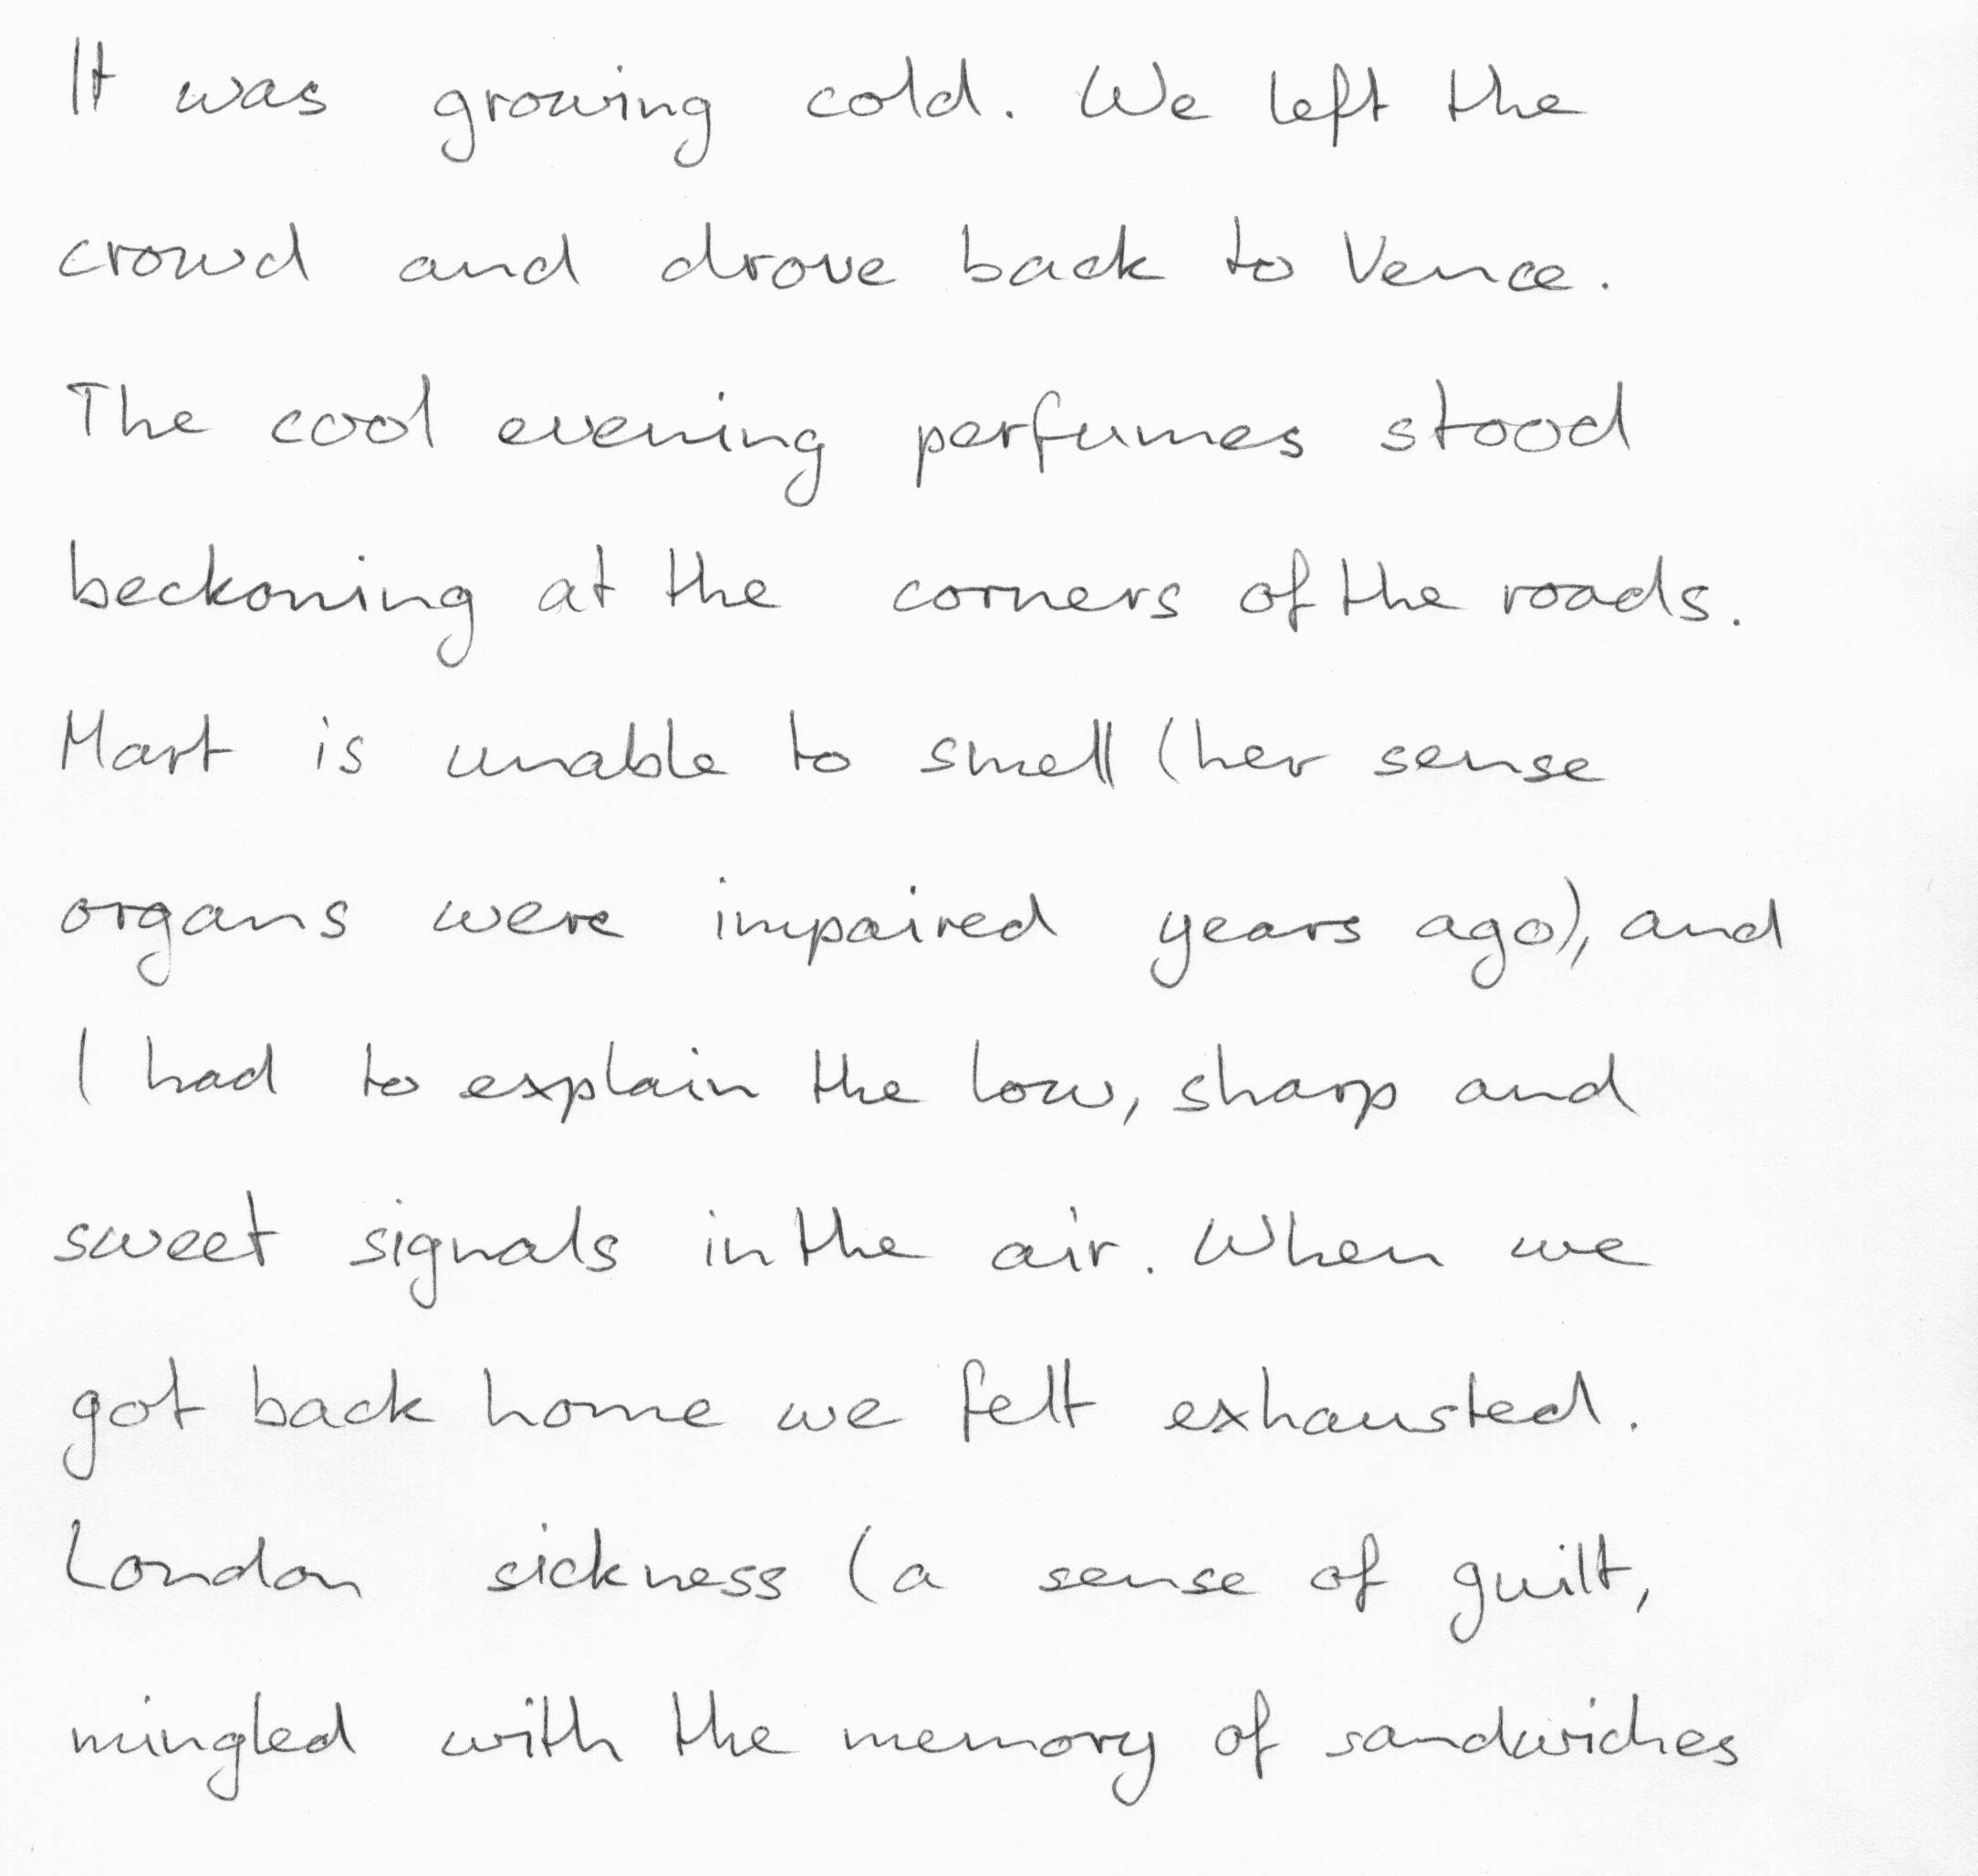 It was growing cold. We left the
crowd and drove back to Vence.
The cool evening perfumes stood
beckoning at the corners of the roads.
Mart is unable to smell (her sense
organs were impaired years ago), and
I had to explain the low, sharp and
sweet signals in the air. When we
got back home we felt exhausted.
London sickness (a sense of guilt,
mingled with the memory of sandwiches